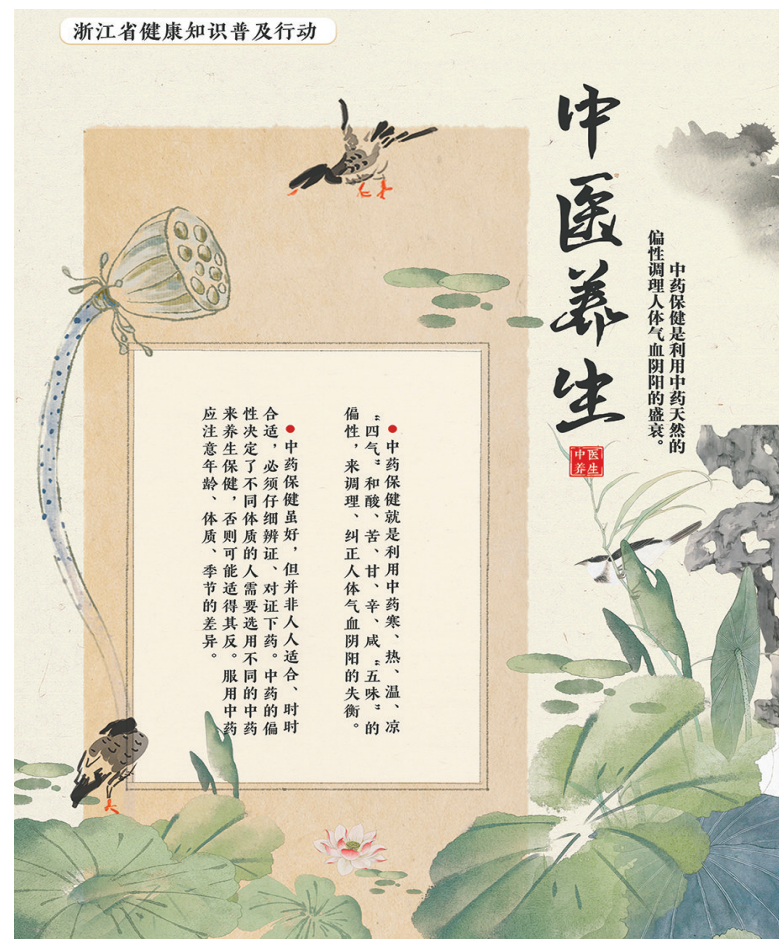 浙江省健康知识普及行动
中医养生
中医
养生
中药保健是利用中药天然的
偏性调理人体气血阴阳的盛衰。
●中药保健就是利用中药寒、热、温、凉
“四气”和酸、苦、甘、辛、咸“五味”的
偏性，来调理、纠正人体气血阴阳的失衡。
●中药保健虽好，但并非人人适合、时时
合适，必须仔细辨证、对证下药。中药的偏
性决定了不同体质的人需要选用不同的中药
来养生保健，否则可能适得其反。服用中药
应注意年龄、体质、季节的差异。